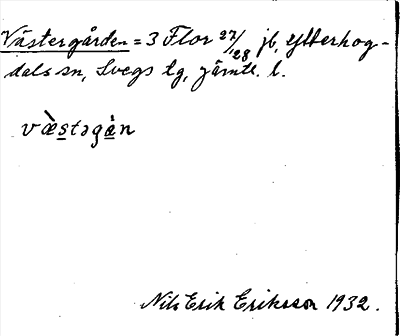 Västergården = 3 Flor 27/28 jb, Ytterhog-
dals sn, Svegs tg, Jämtl. l.
væ̀stəgȧn
Nils Erik Eriksson 1932.